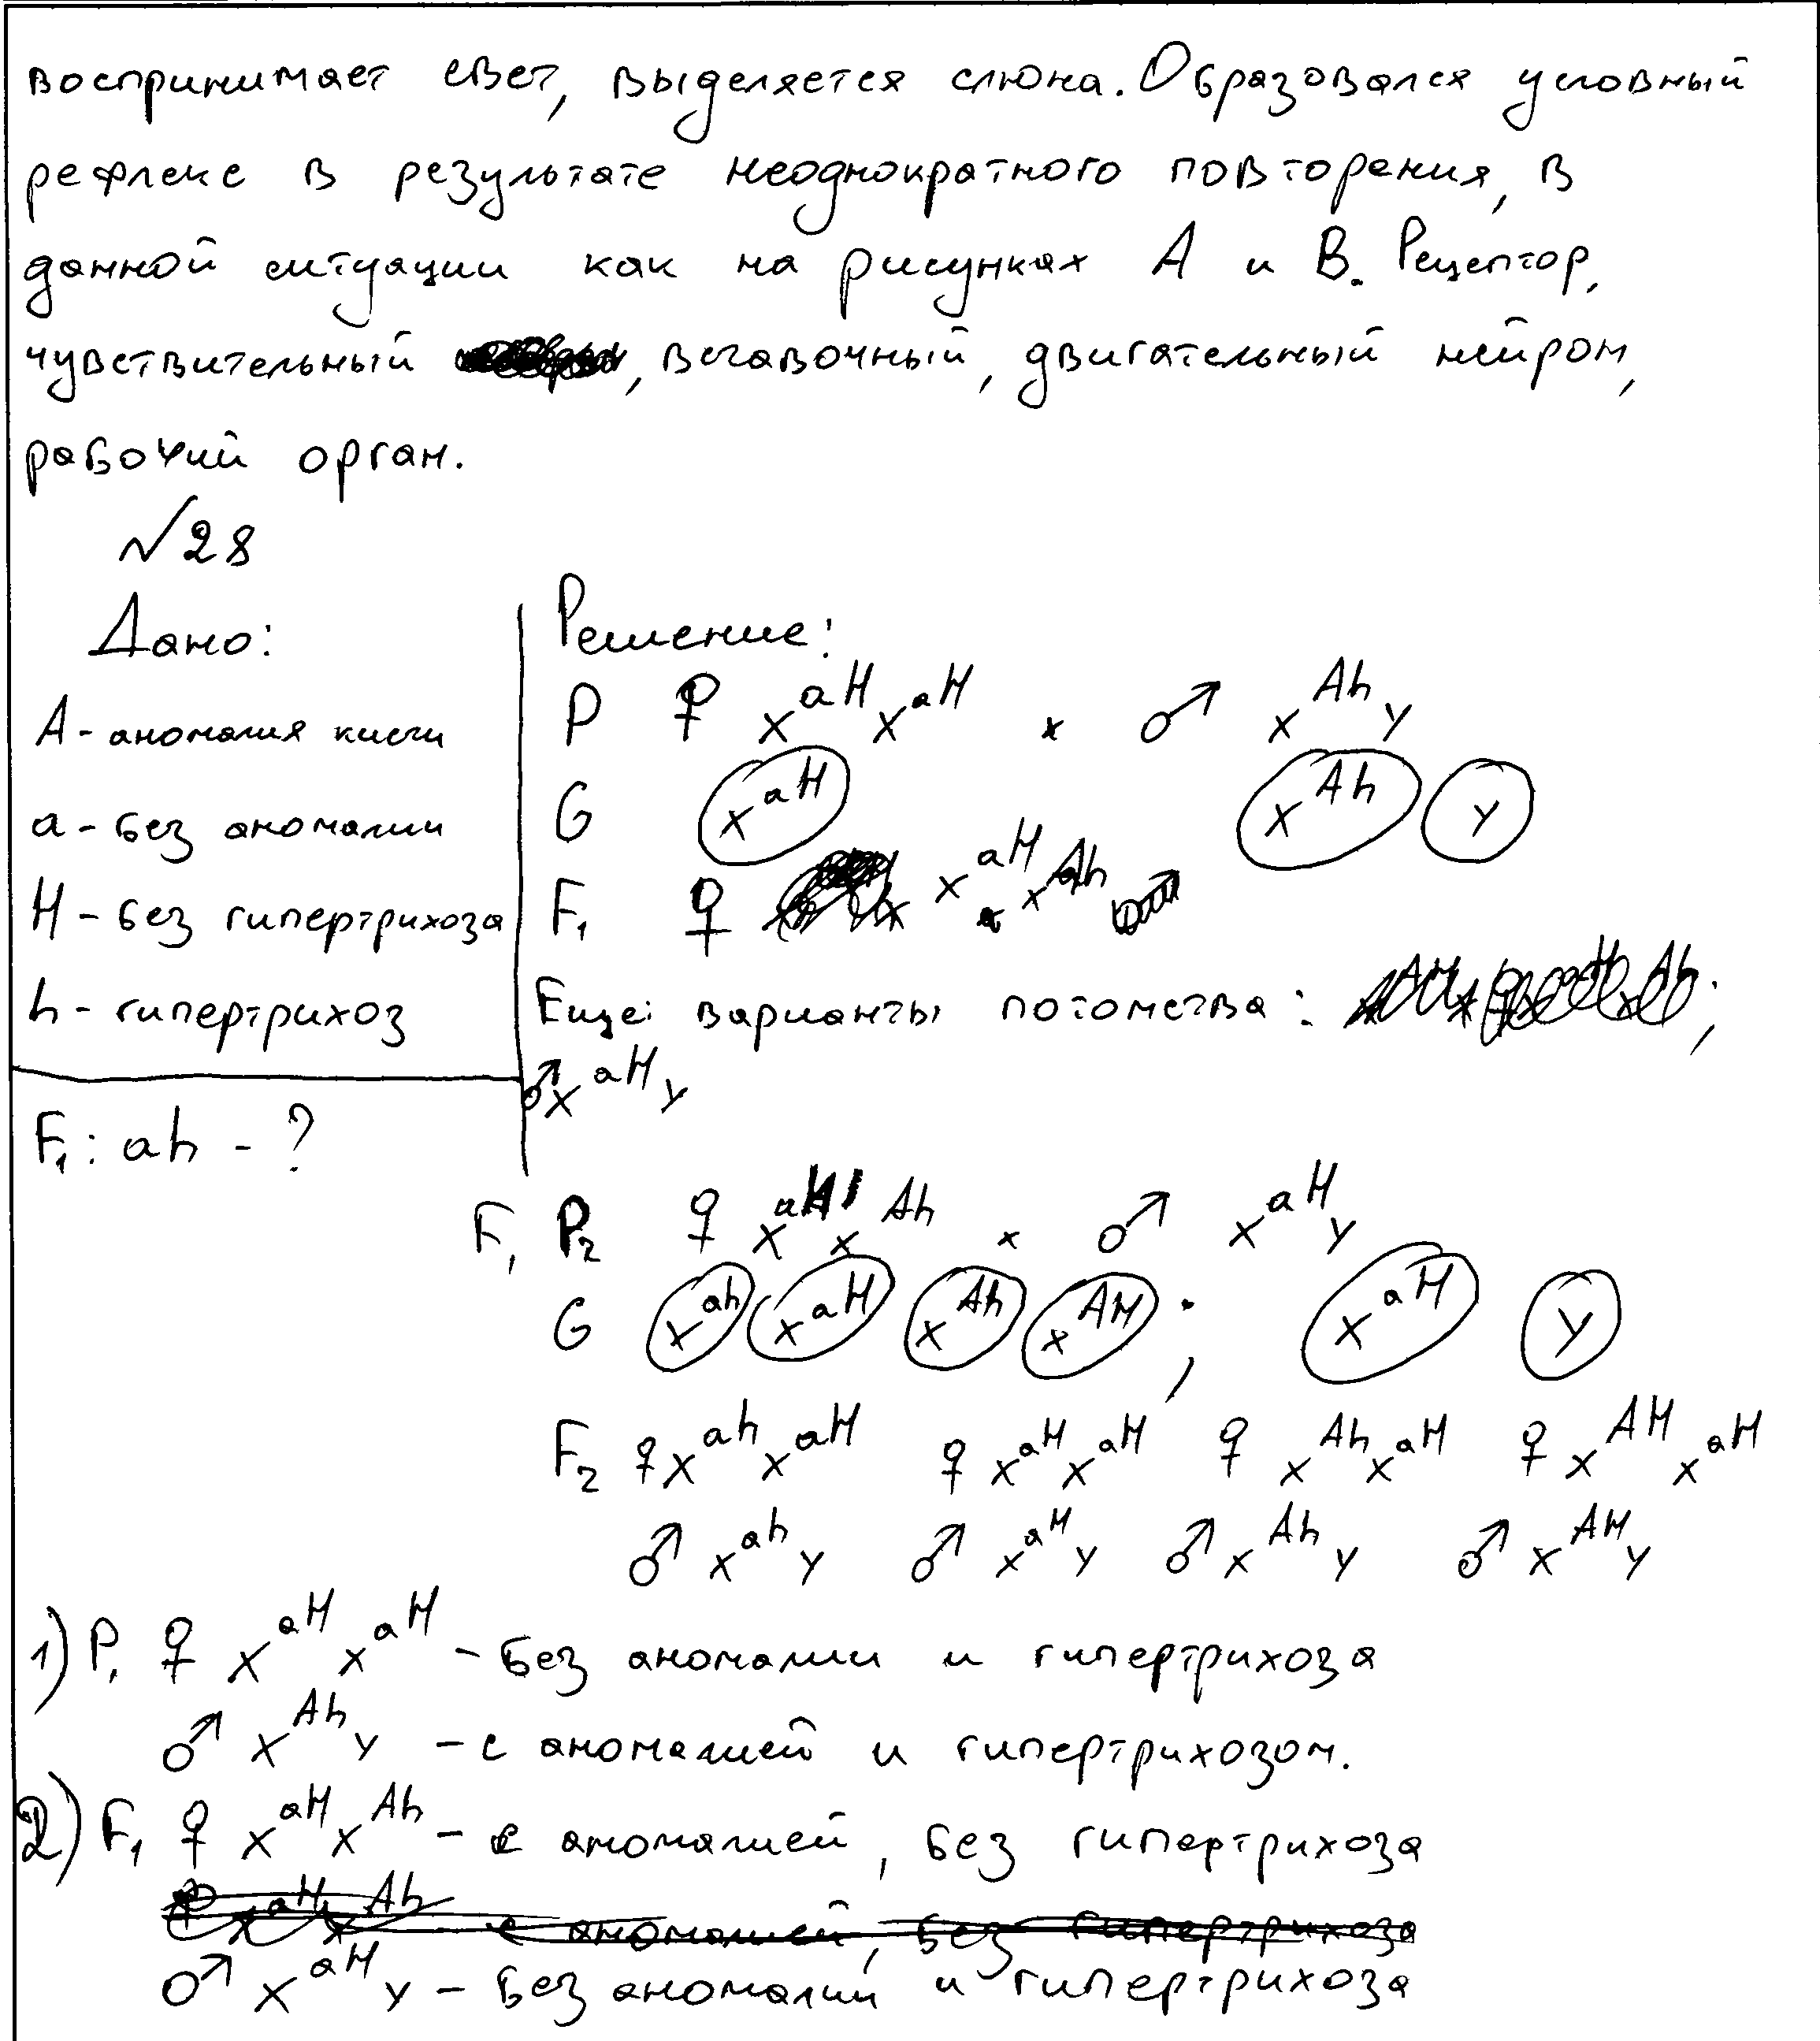 воспринимает свет, выделяется слюна. Образовался условный
рефлекс в результате неоднократного повторения, в
данной ситуации как на рисунках А и В. Рецептор,
чувствительный , вставочный, двигательный нейрон,
рабочий орган.
№28
Дано:
A - аномалия кисти
a - без аномалии
H - без гипертрихоза
h - гипертрихоз
F₁: ah - ?
Решение:
P ♀ X^aH X^aH x ♂ X^Ah Y
G X^aH X^Ah Y
F₁ ♀ X^aH X^Ah
Еще: варианты потомства: ;
♂ X^aH Y
F₁ P₂ ♀ X^aH X^Ah x ♂ X^aH Y
G X^ah X^aH X^Ah X^AH ; X^aH Y
F₂ ♀ X^ah X^aH ♀ X^aH X^aH ♀ X^Ah X^aH ♀ X^AH X^aH
♂ X^ah Y ♂ X^aH Y ♂ X^Ah Y ♂ X^AH Y
1) P₁ ♀ X^aH X^aH - без аномалии и гипертрихоза
♂ X^Ah Y - с аномалией и гипертрихозом.
2) F₁ ♀ X^aH X^Ah - с аномалией, без гипертрихоза
♀ X^aH X^Ah - с аномалией, без гипертрихоза
♂ X^aH Y - без аномалии и гипертрихоза